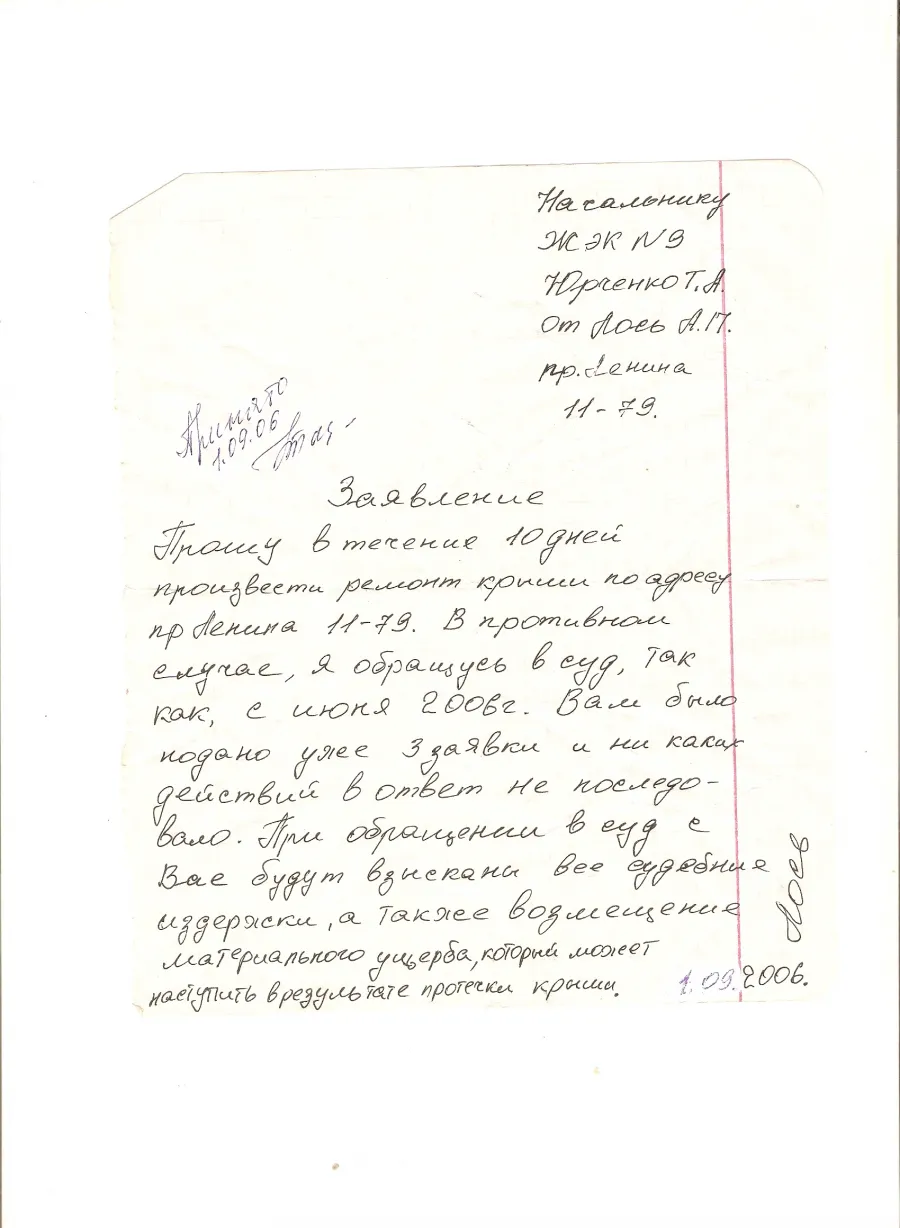 Начальнику
ЖЭК N9
Юрченко Т.А.
От Лось А.П.
пр. Ленина
11-79.
Принято
1.09.06
Заявление
Прошу в течение 10 дней
произвести ремонт крыши по адресу
пр Ленина 11-79. В противном
случае, я обращусь в суд, так
как, с июня 2006г. Вам было
подано уже 3 заявки и ни каких
действий в ответ не последо-
вало. При обращении в суд с
Вас будут взысканы все судебные
издержки, а также возмещение
материального ущерба, который может
наступить в результате протечки крыши.
1.09.2006.
Лось